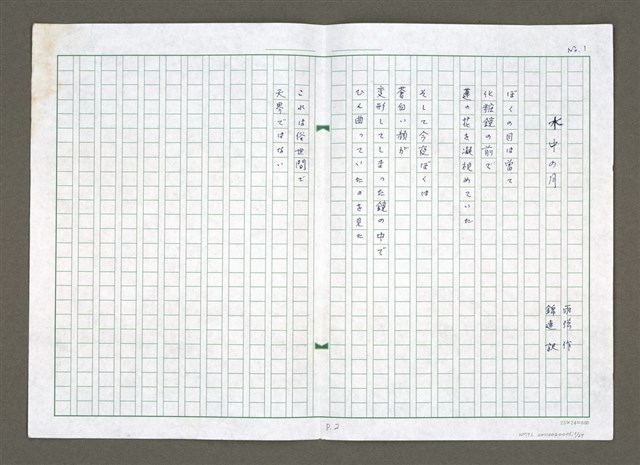 No. 1
水中の月
錦連 訳
ぼくの目は曽て
化粧鏡の前で
蓮の花を凝視めていた
そして今夜ぼくは
蒼白い顔が
変形してしまった鏡の中で
ひん曲っていたのを見た
これは俗世間で
天界ではない
P. 2